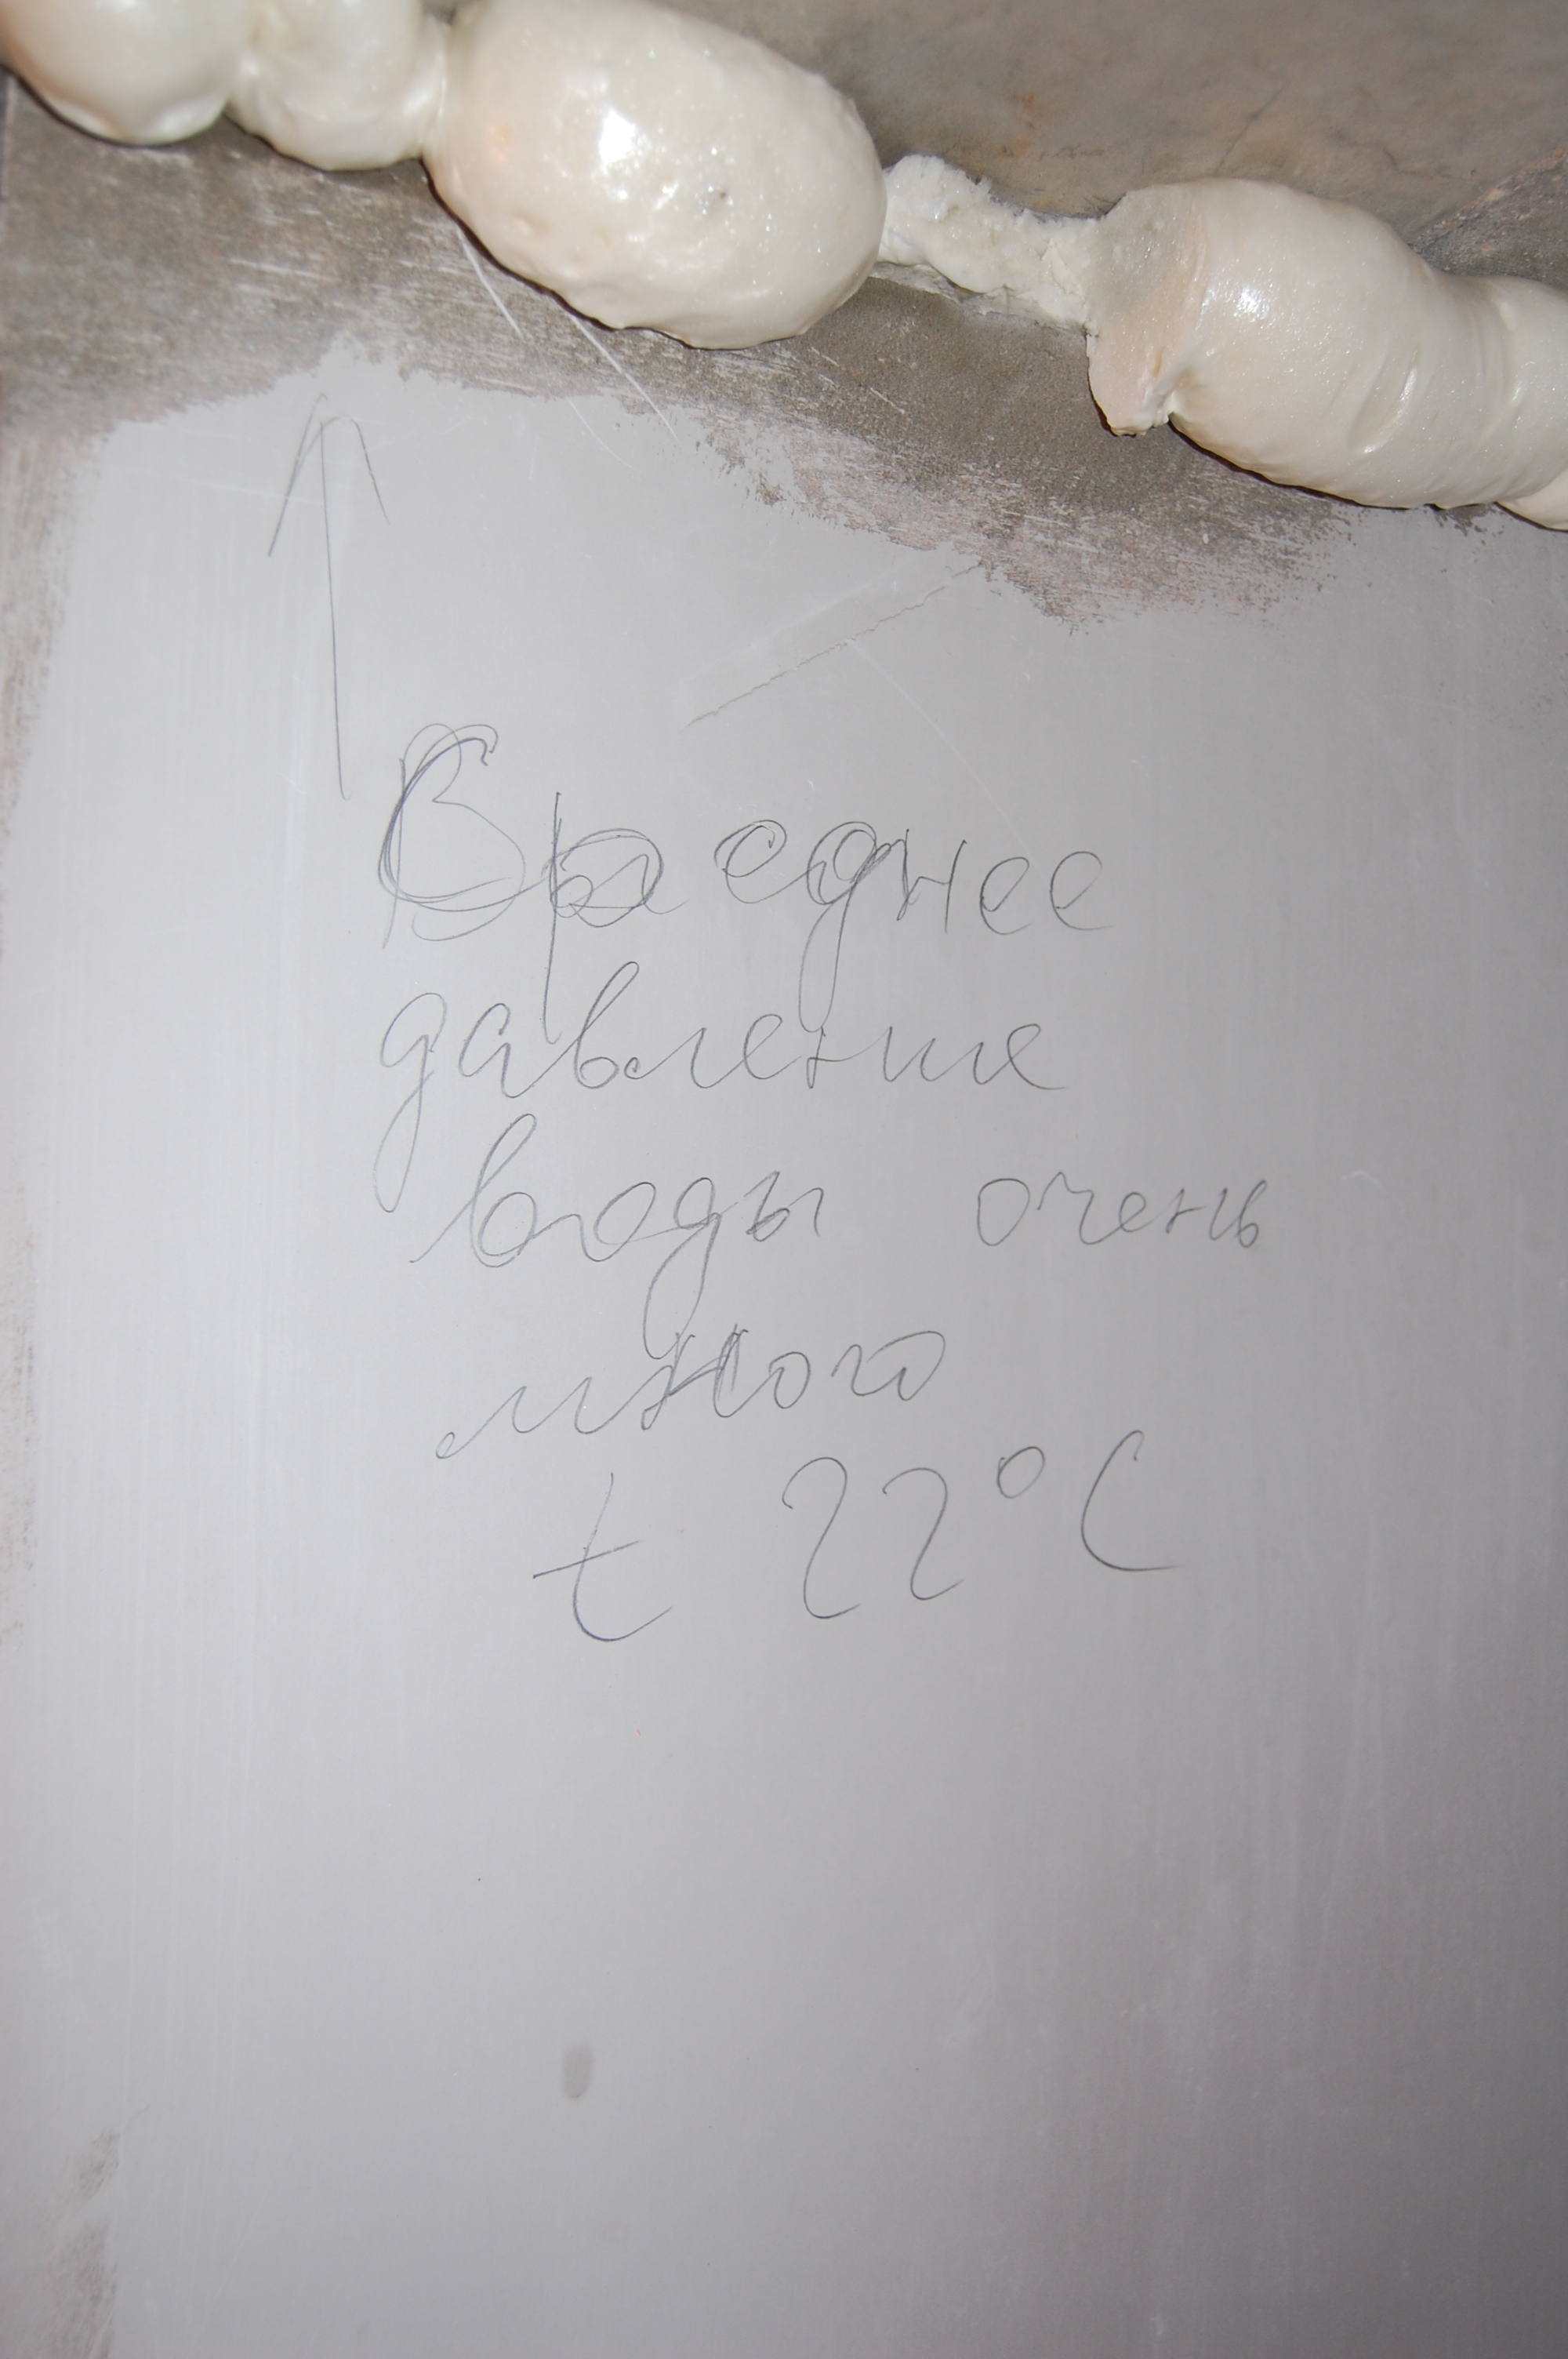 Среднее
давление
воды очень
много
t 22°C